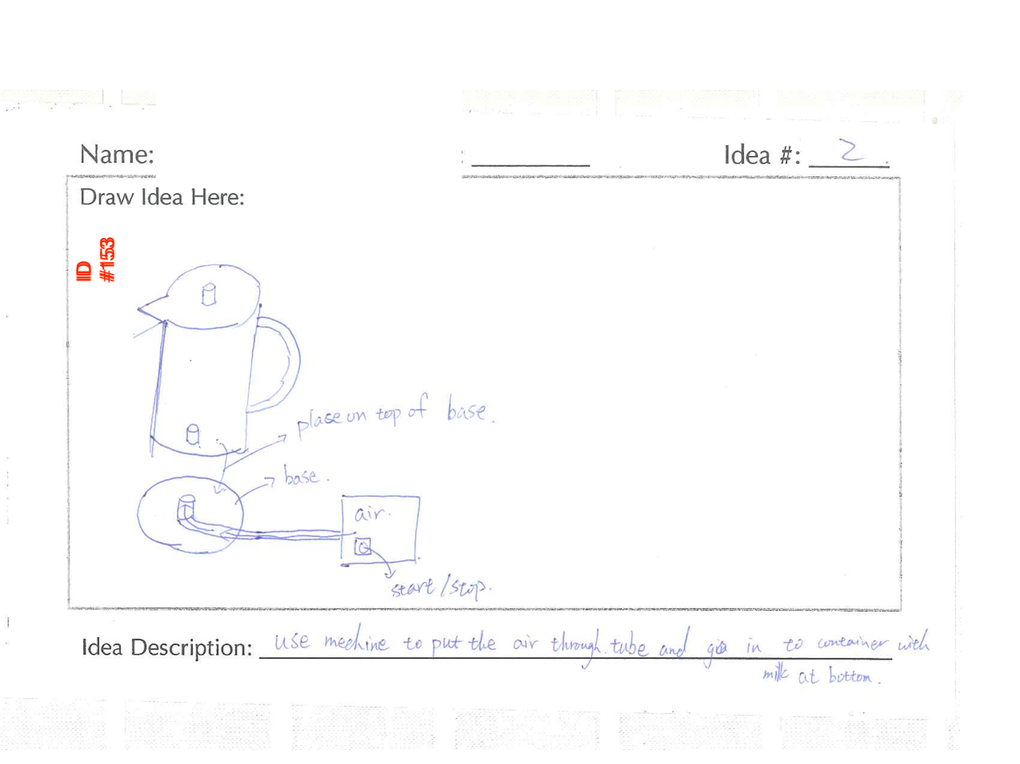 Name:
: Idea #: 2
Draw Idea Here:
ID
#153
place on top of base.
base.
air.
start/stop.
Idea Description: use mechine to put the air through tube and go in to container with
milk at bottom.